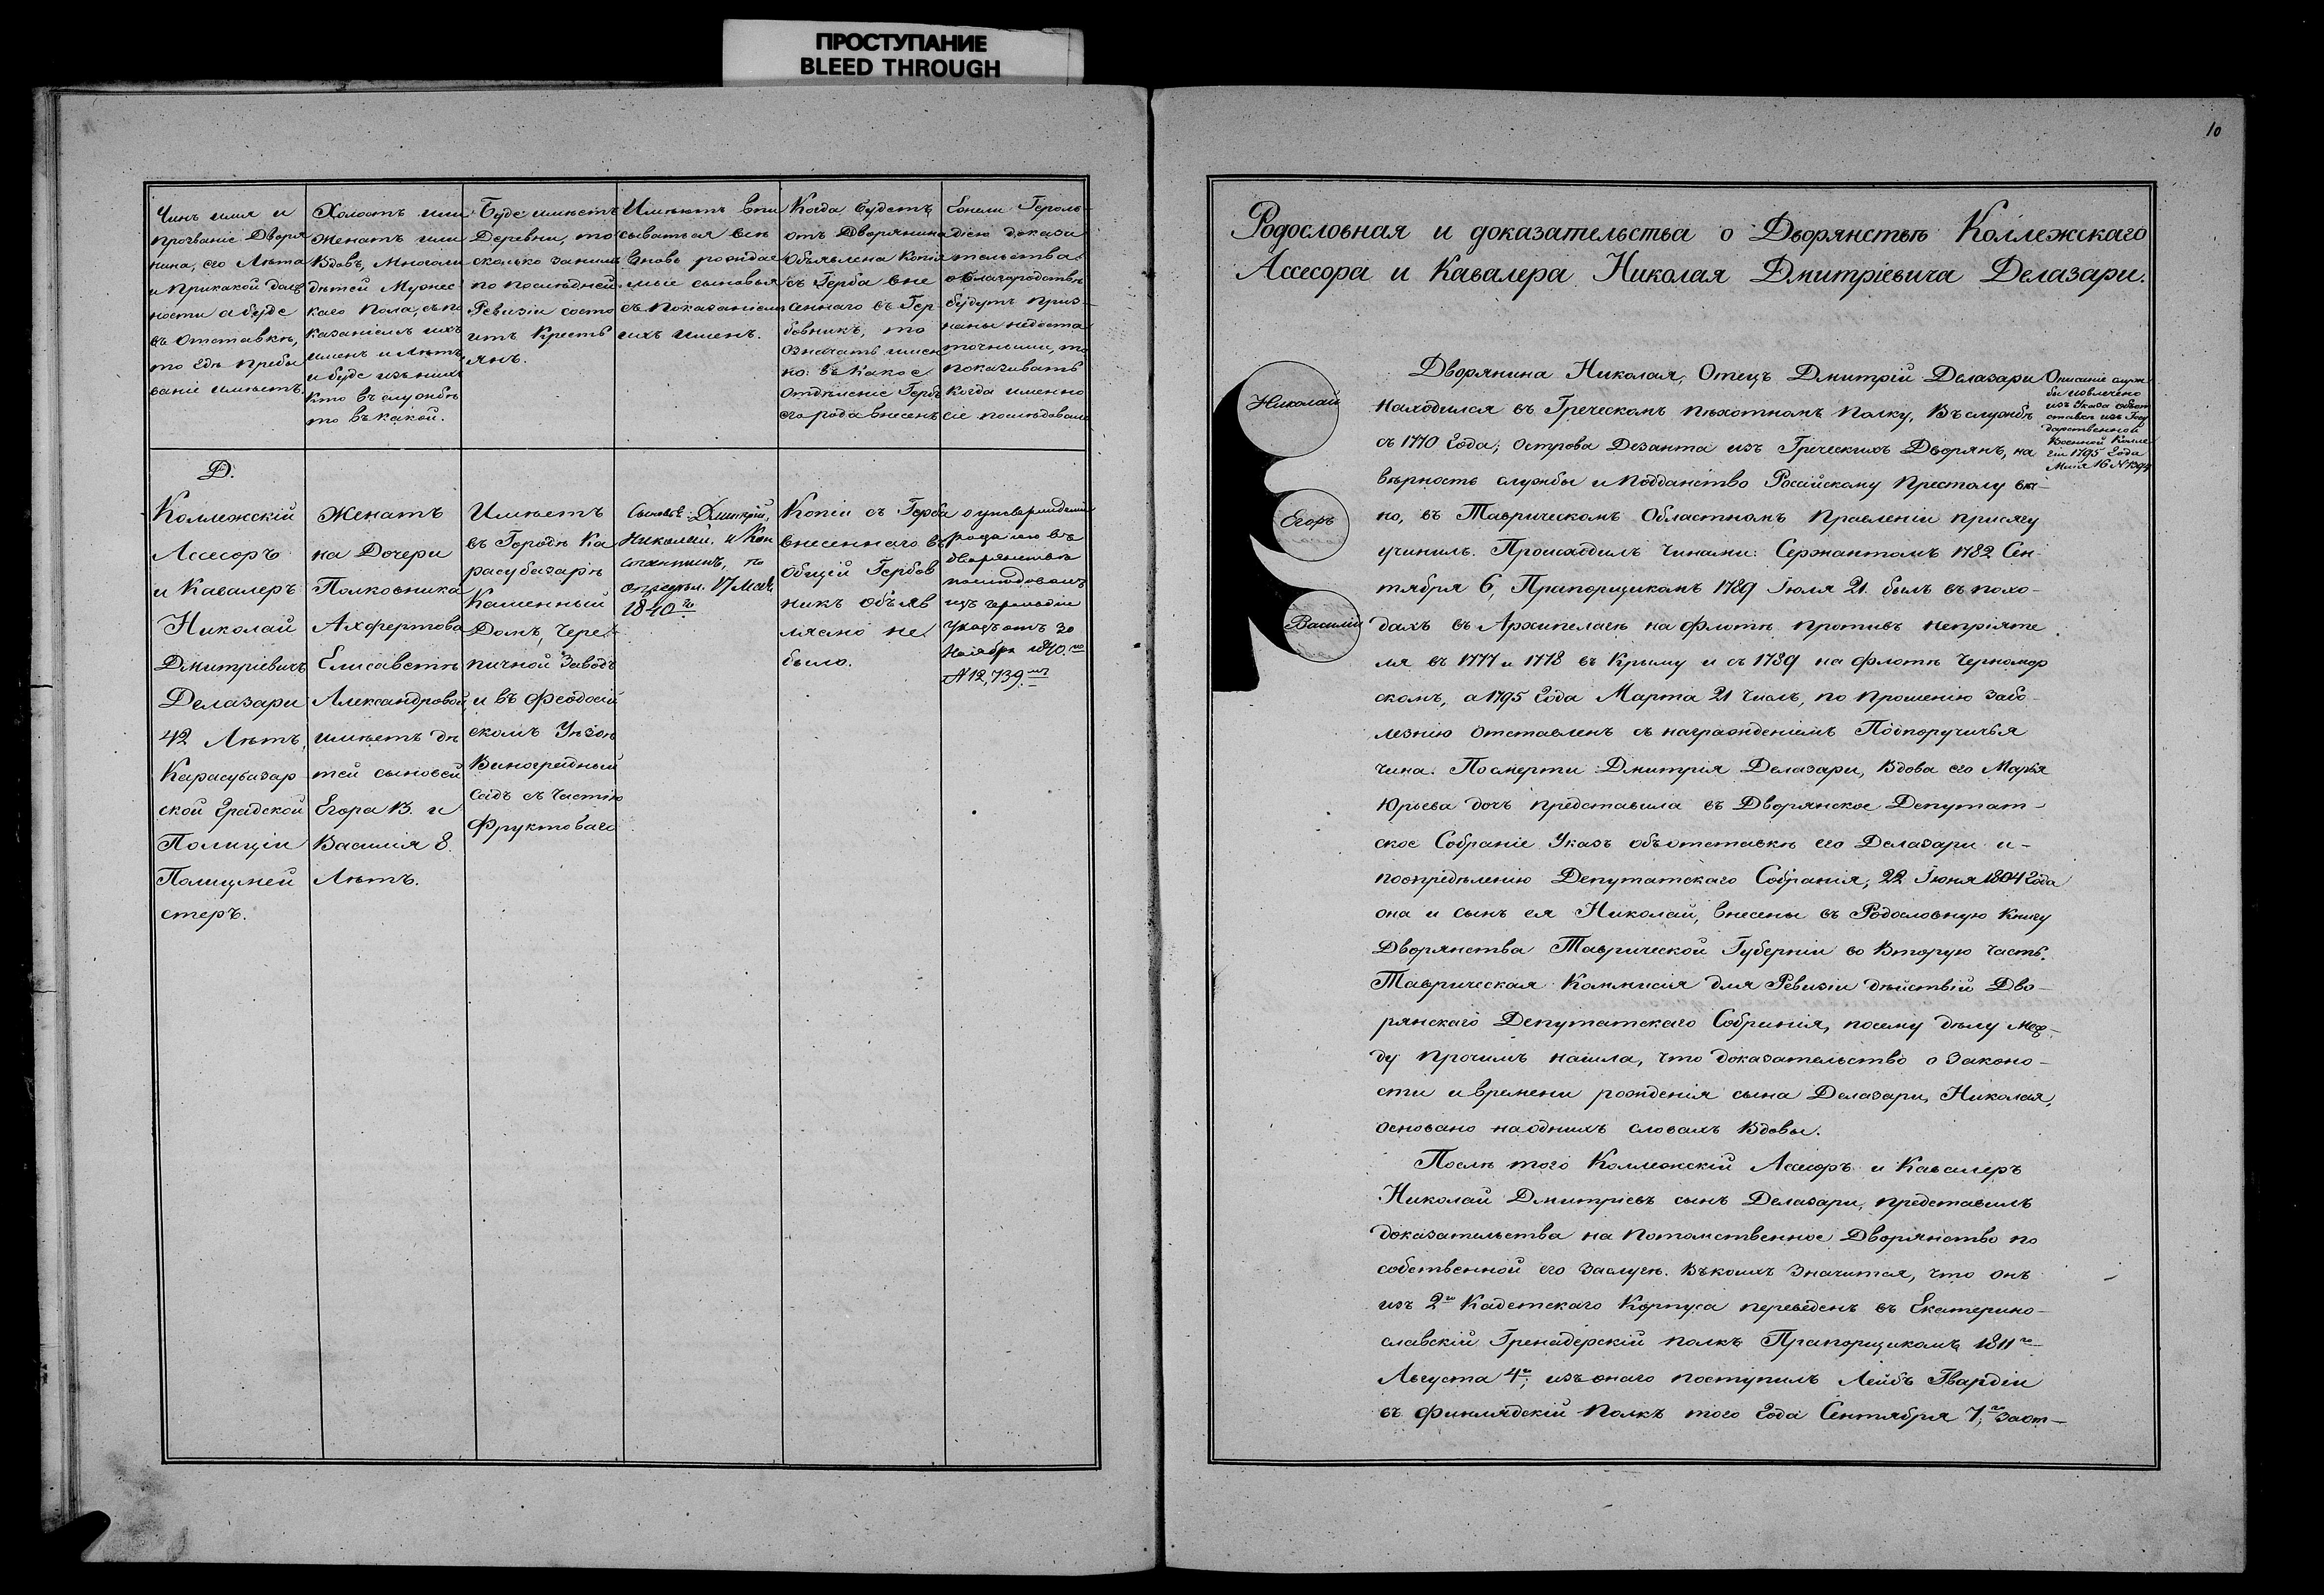 ПРОСТУПАНИЕ
BLEED THROUGH
Чинъ имя и
прозваніе Дворя
нина, его Лѣта
и прикакой долж
ности а буде
въ отставкѣ,
то гдѣ пребы
ваніе имѣетъ.
Холостъ или
Женатъ или
Вдовъ, Многоли
дѣтей Мужес
каго пола, съ по
казаніемъ ихъ
именъ и Лѣтъ
и буде изъ нихъ
кто въ службѣ
то въ какой.
Буде имѣетъ
Деревни, то
сколько занимъ
по послѣдней
Ревизіи состо
итъ Кресть
янъ.
Имѣютъ впи
сываться всѣ
вновь рождае
мые сыновья
съ показаніемъ
ихъ именъ.
Когда будетъ
отъ Дворянина
объявлена копія
съ Герба вне
сеннаго въ Гер
бовникъ, то
означать имен
но: въ какое
отдѣленіе Герб
его рода внесенъ
Еонели Героль
діею доказа
тельства
облагородствѣ
будутъ приз-
наны недоста
точными, то
показывать
когда именно
сіе послѣдовало
Д.
Коллежскій
Ассесоръ
и Кавалеръ
Николай
Дмитріевичъ
Делазари
42 Лѣтъ,
Карасубазар
ской градской
Полиціи
Полицмей
стеръ.
Женатъ
на Дочери
Полковника
Ахфертова
Елисаветѣ
Александровой,
имѣетъ дѣ
тей сыновей
Егора В. и
Василія 8.
Лѣтъ.
Имѣетъ
въ Городѣ Ка
расубазарѣ
Каменный
Домъ, Чере
пичной Заводъ
и въ Феодосій
скомъ Уѣздѣ
Виноградный
садъ съ частію
Фруктоваго
Сыновья: Дмитрій,
Николай. и Кон
стантинъ, по
опредѣл. 17 Мая
1840 го
Копіи съ Герба
внесеннаго въ
общій Гербов
никъ объяв
ляемо не
было.
о утвержденіи
рода его въ
дворянствѣ
послѣдовалъ
изъ герольдіи
указъ отъ 30
Ноября 1840. го
№ 12,739. мъ
10
Родословная и доказательства о Дворянствѣ Коллежскаго
Ассесора и Кавалера Николая Дмитріевича Делазари.
Николай
Егоръ
Василій
Описаніе служ
бы извлечено
изъ Указа объот
ставкѣ изъ Госу
дарственной
Военной Колле
гіи 1795 года
Маія 16
Дворянина Николая, Отецъ Дмитрій Делазари
находился въ Греческомъ пѣхотномъ полку, Въ службѣ
съ 1770 года; острова Дезанта изъ Греческихъ Дворянъ, на
вѣрность службы и подданство Россійскому Престолу вѣч-
но, въ Таврическомъ Областномъ правленіи присягу
учинилъ. Происходилъ Чинами: Сержантомъ 1782 Сен-
тября 6, Прапорщикомъ 1789 Іюля 21. былъ въ похо-
дахъ въ Архипелагѣ на флотѣ противъ непріяте
ля въ 1777 и 1778 въ Крыму и съ 1789 на флотѣ Черномор
скомъ, а 1795 года Марта 21 числъ, по прошенію забо-
лезнію отставленъ съ награжденіемъ Подпоручичья
чина. По смерти Дмитрія Делазари, Вдова его Марья
Юрьева дочь представила въ Дворянское Депутат-
ское Собраніе Указъ объотставкѣ его Делазари и-
поопредѣленію Депутатскаго Собранія; 22 Іюня 1804 года
она и сынъ ея Николай, внесены въ Родословную книгу
Дворянства Таврической Губерніи во Вторую часть.
Таврическая Коммисія для Ревизіи дѣйствій Дво-
рянскаго Депутатскаго Собранія, посему дѣлу меж-
ду прочимъ нашла, что доказательство о законо-
сти и времени рожденія сына Делазари, Николая,
основано наоднихъ словахъ Вдовы.
Послѣ того Коллежскій Ассесоръ и Кавалеръ
Николай Дмитріевъ сынъ Делазари, представилъ
доказательства на потомственное Дворянство по
собственной его заслугѣ. Въ коихъ значится, что онъ
изъ 2 го Кадетскаго Корпуса переведенъ въ Екатерино-
славскій Гренадерскій полкъ Прапорщикомъ 1811 го
Августа 4 го; изъ онаго поступилъ Лейбъ Гвардіи
въ Финлядскій полкъ того года Сентября 7, го заот-